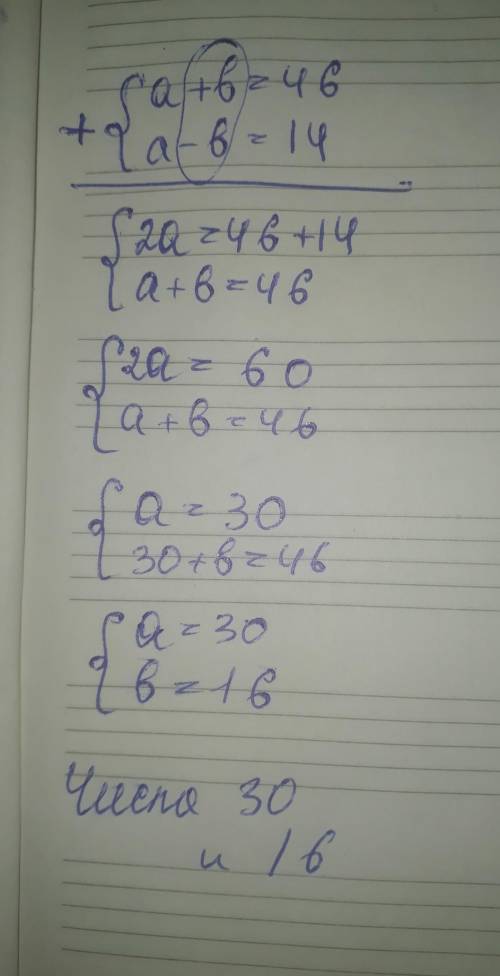 + { a + b = 46
a - b = 14
{ 2a = 46 + 14
a + b = 46
{ 2a = 60
a + b = 46
{ a = 30
30 + b = 46
{ a = 30
b = 16
Числа 30
и 16